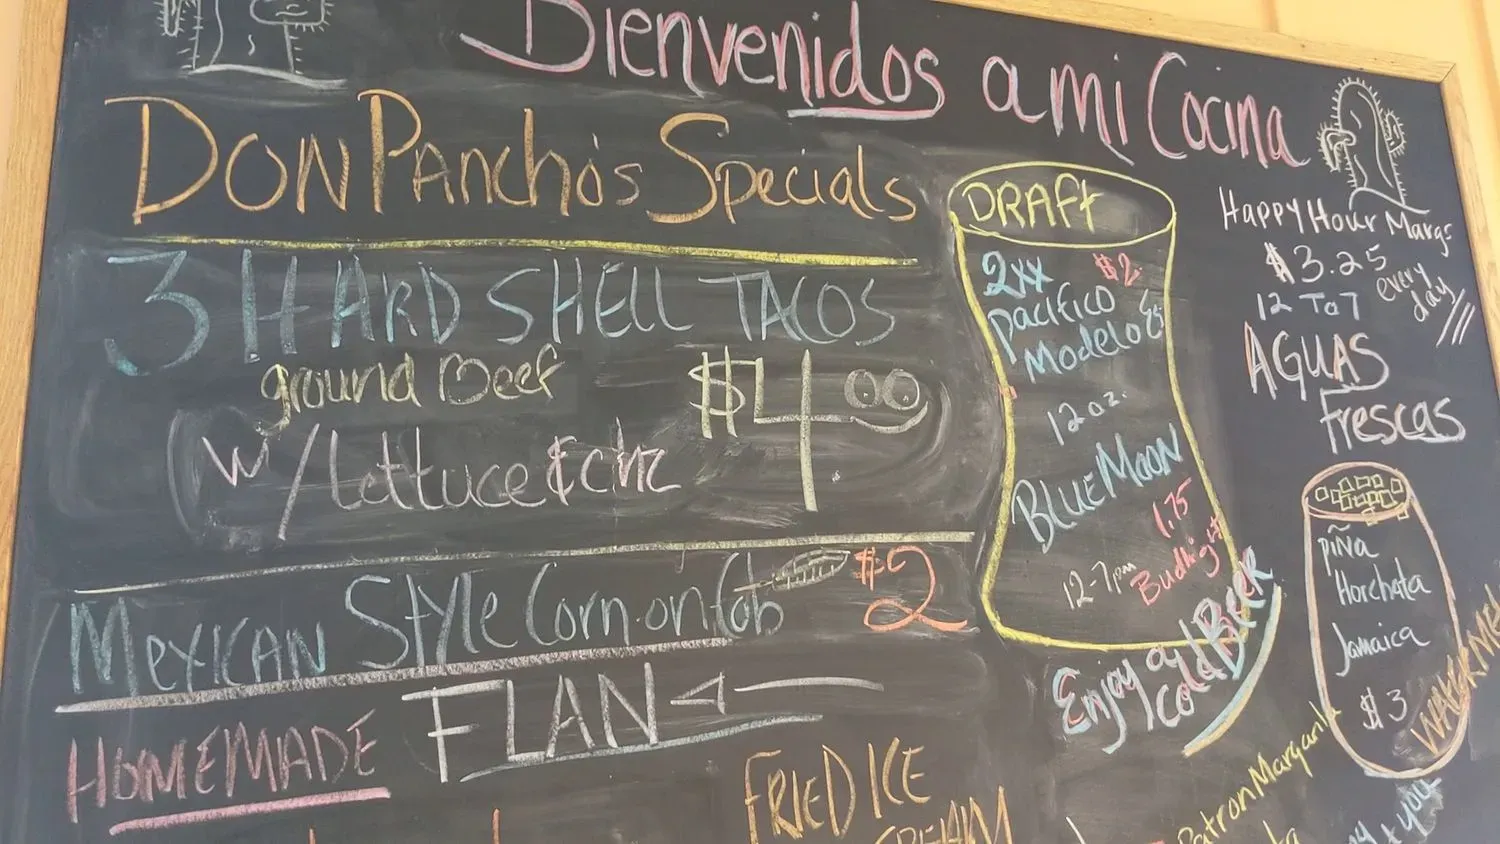 Bienvenidos a mi Cocina
Don Pancho's Specials
3 HARD SHELL TACOS
ground Beef
$4.00
w/lettuce & chz
Mexican Style Corn-on-Cob $2
HOMEMADE FLAN
FRIED ICE
CREAM
DRAFT
2xx $2
pacifico
Modelo Es
12 oz.
BLUE MOON
1.75
Budlight
12-7pm
Enjoy a
Cold BEER
Happy Hour Margs
$3.25
every
day
12 To 7
AGUAS
Frescas
piña
Horchata
Jamaica
$3
Patron Margarita